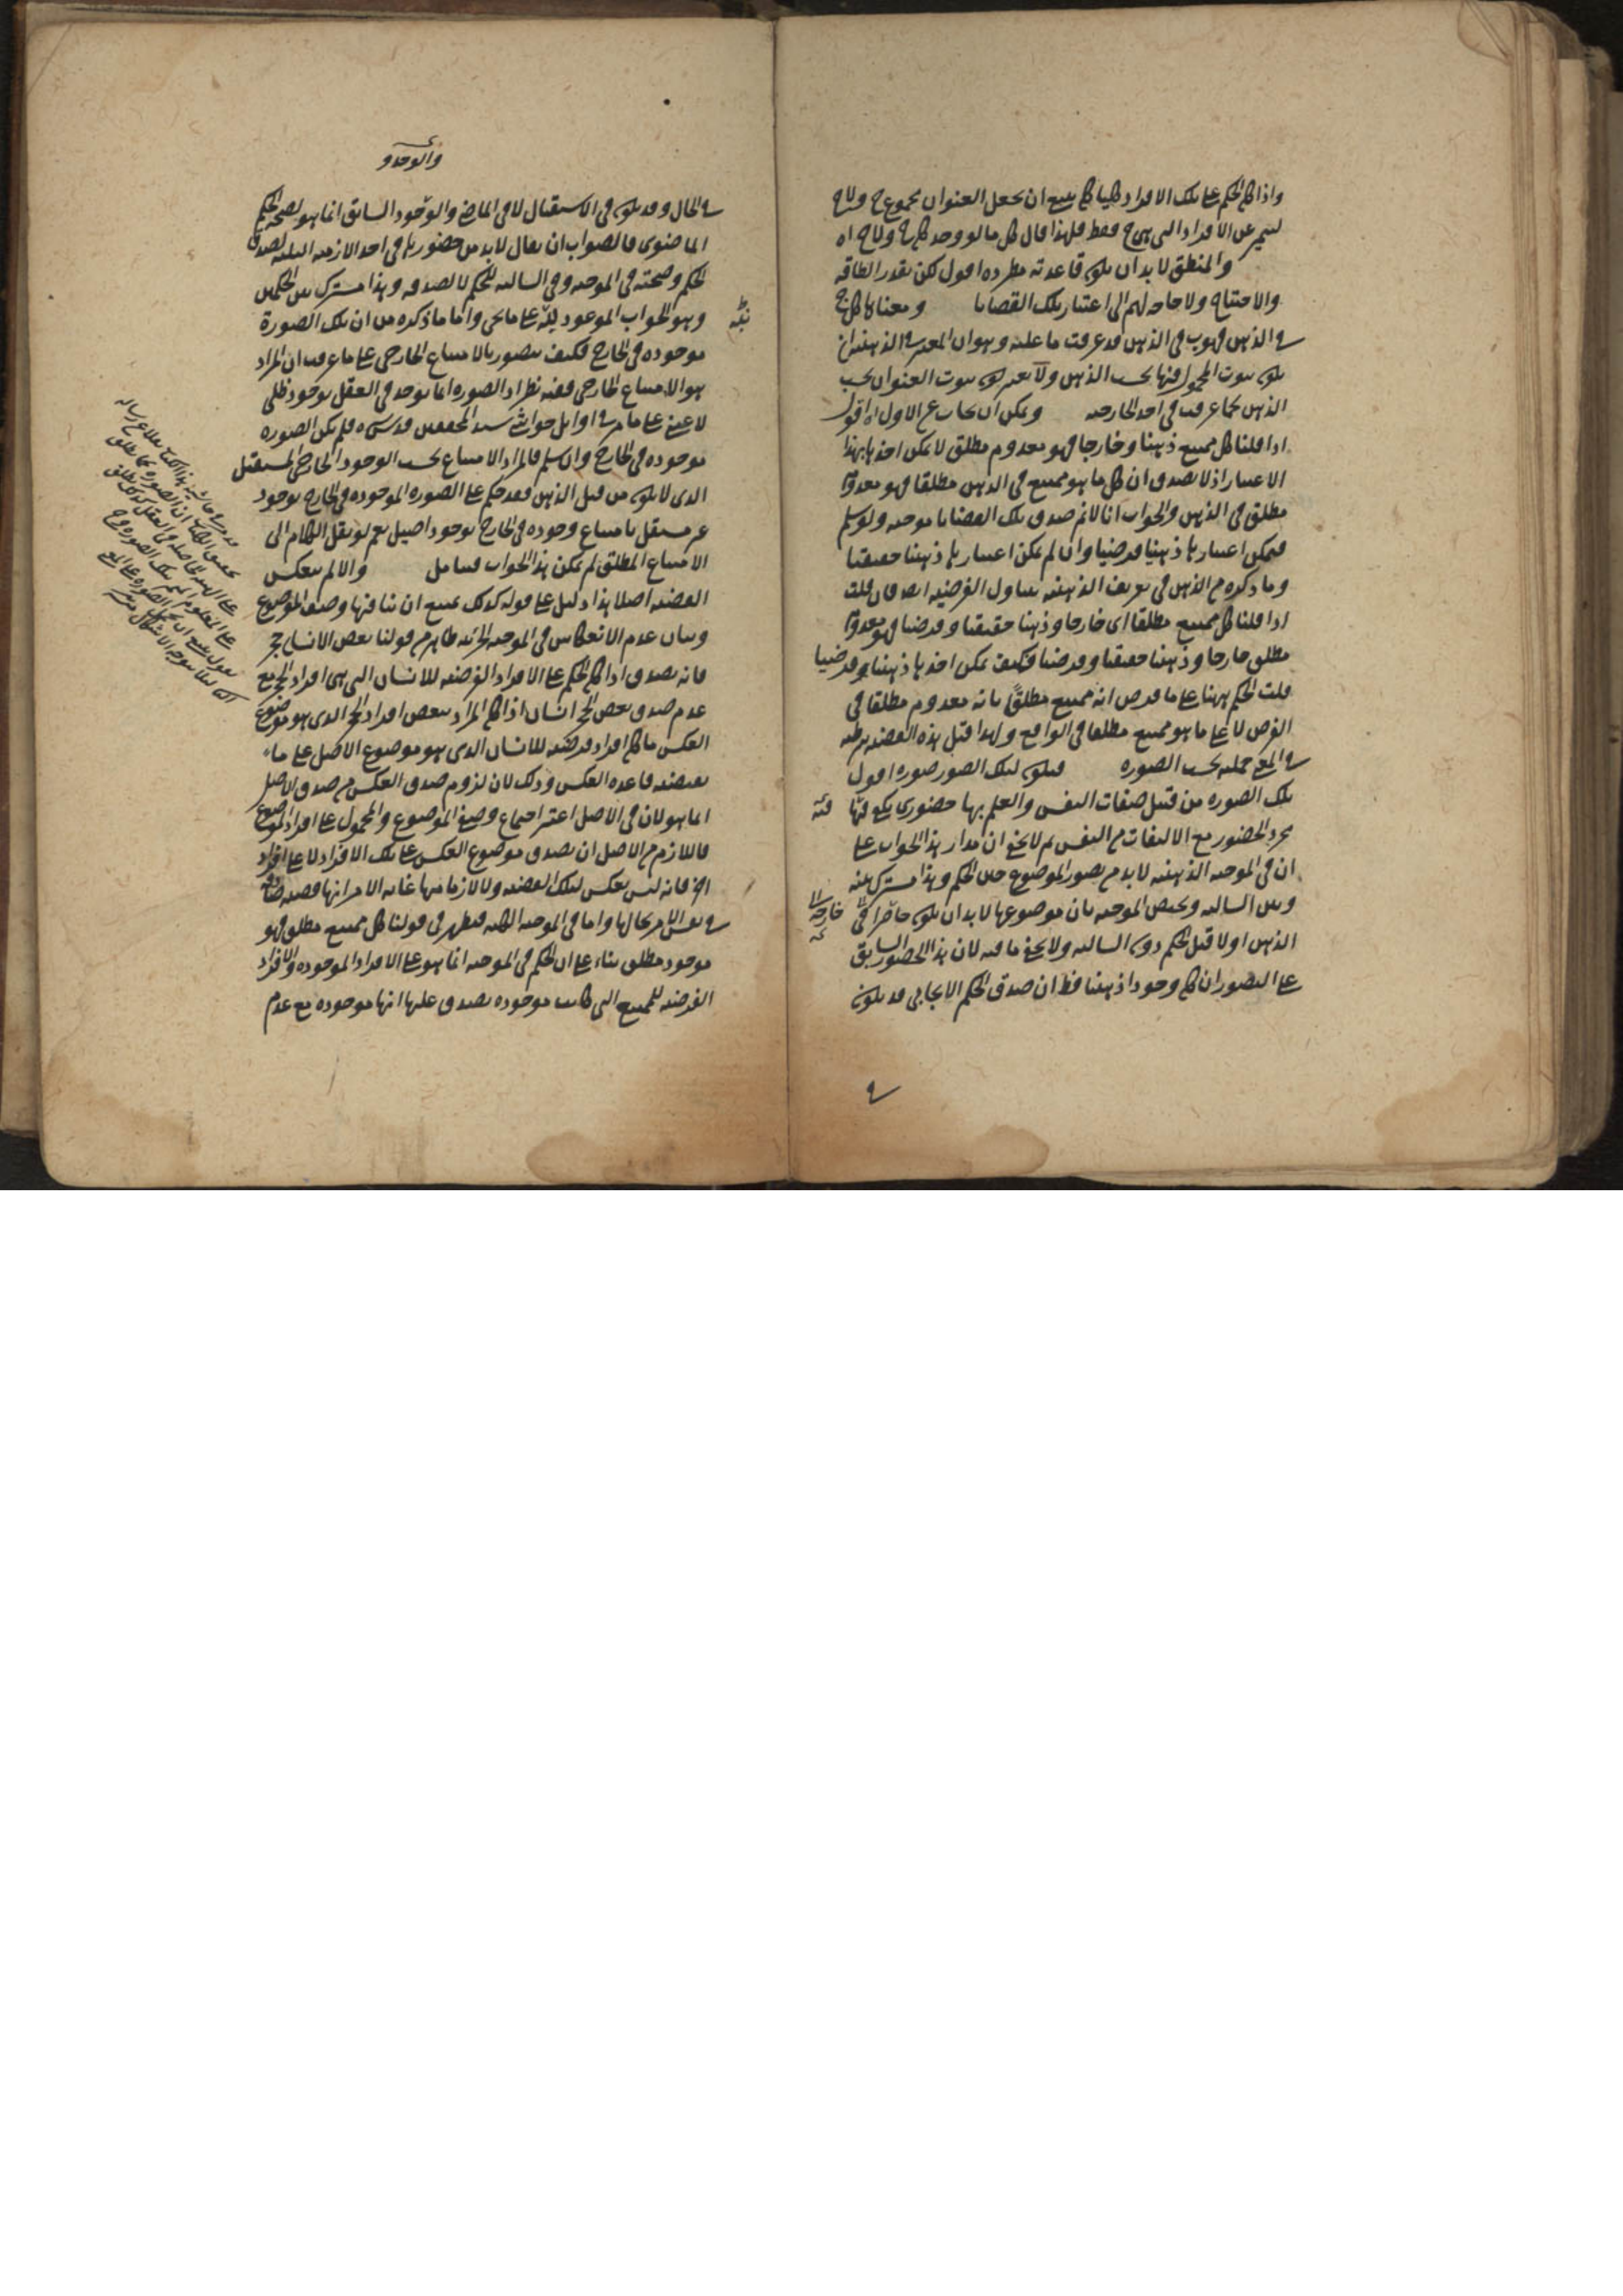 واذا كان الحكم على تلك الافراد كليا كان ينبغي ان يجعل العنوان مجموع ج ولا ج
ليعبر عن الافراد التي هي ج فقط فلهذا قال كل ما لو وجد كان ج ولا ج اه
والمنطق لا بد ان يكون قاعدته مطردة اقول لكن بقدر الطاقه
والاحتياج ولا حاجه لهم الى اعتبار تلك القضايا ومعناها كل ج
في الذهن فهو ب في الذهن قد عرفت ما عليه وهو ان المعتبر في الذهنيه ان
يكون ثبوت المحمول فيها بحسب الذهن ولا يعتبر كون ثبوت العنوان بحسب
الذهن كما عرفت في اخذ الخارجيه ويمكن ان يجاب عن الاول اه اقول
اذا قلنا كل ممتنع ذهنا وخارجا فهو معدوم مطلق لا يمكن اخذها بهذا
الاعتبار اذ لا يصدق ان كل ما هو ممتنع في الذهن مطلقا فهو معدوم
مطلق في الذهن والجواب انا لا نم صدق تلك القضايا موجبه ولو سلم
فيمكن اعتبارها ذهنيا فرضيا وان لم يمكن اعتبارها ذهنيا حقيقيا
وما ذكره من الذهن في تعريف الذهنيه يتناول الفرضيه ايضا فان قلت
اذا قلنا كل ممتنع مطلقا اى خارجا وذهنا حقيقيا وفرضيا فهو معدوم
مطلق خارجا وذهنا حقيقيا وفرضيا فكيف يمكن اخذها ذهنيا وفرضيا
قلت الحكم ههنا على ما فرض انه ممتنع مطلقا بانه معدوم مطلقا في
الفرض لا على ما هو ممتنع مطلقا في الواقع ولهذا قيل هذه القضيه شرطيه
في المعنى حمليه بحسب الصوره فيكون لتلك الصور صوره اقول
تلك الصوره من قبيل صفات النفس والعلم بها حضورى يكفي فيه
مجرد الحضور مع الالتفات من النفس ثم لا يخفى ان مدار هذا الجواب على
ان في الموجبه الذهنيه لا بد من تصور الموضوع حين الحكم وهذا مشترك بينه
وبين السالبه ويختص الموجبه بان موضوعها لا بد ان يكون حاضرا في
الذهن اولا قبل الحكم دون السالبه ولا يخفى ما فيه لان هذا الحضور السابق
على التصور ان كان وجودا ذهنيا فظ ان صدق الحكم الايجابي قد يكون
في الحال وقد يكون في الاستقبال لا في الماضي والوجود السابق انما هو لصحة الحكم
الماضوى فالصواب ان يقال لا بد من حضورها في احد الازمنه الثلثه لصدق
الحكم وصحته في الموجبه وفي السالبه للحكم لا لصدقه وهذا مشترك بين الحكمين
وهو الجواب الموعود على ما يجى واما ما ذكره من ان تلك الصورة
موجوده في الخارج فكيف يتصور بالامتناع الخارجي على ما عرفت ان المراد
هو الامتناع الخارجي ففيه نظر اذ الصوره انما توجد في العقل بوجود ظلي
لا عيني على ما مر في اوايل حواشي سيد المحققين قدس سره فلم يكن الصوره
موجوده في الخارج وان سلم فالمراد الامتناع بحسب الوجود الخارجي المستقل
الذى لا يكون من قبل الذهن فقد حكم على الصوره الموجوده في الخارج بوجود
غير مستقل بامتناع وجوده في الخارج بوجود اصيل نعم لو نقل الكلام الى
الامتناع المطلق لم يمكن هذا الجواب فتامل والا لم ينعكس
القضيه اصلا هذا دليل على قوله كذلك يمتنع ان ينافيها وصف الموضوع
وبيان عدم الانعكاس في الموجبه الجزئيه ظاهر من قولنا بعض الانسان حجر
فانه يصدق اذا كان الحكم على الافراد الفرضيه للانسان التي هي افراد الحجر مع
عدم صدق بعض الحجر انسان اذا كان المراد ببعض افراد الحجر الذى هو موضوع
العكس ما كان افراد فرضيه للانسان الذى هو موضوع الاصل على ما
يقتضيه قاعده العكس وذلك لان لزوم صدق العكس من صدق الاصل
انما هو لان في الاصل اعتبر اجتماع وصفي الموضوع والمحمول على افراد الموضوع
فاللازم من الاصل ان يصدق موضوع العكس على تلك الافراد لا على افراد
اخر فانه ليس بعكس لتلك القضيه ولا لازما منها غايه الامر انها قضيه صادقه
في نفس الامر بحالها واما في الموجبه الكليه فيظهر في قولنا كل ممتنع مطلق فهو
موجود مطلق بناء على ان الحكم في الموجبه انما هو على الافراد الموجوده والافراد
الفرضيه للممتنع التي كانت موجوده يصدق عليها انها موجوده مع عدم